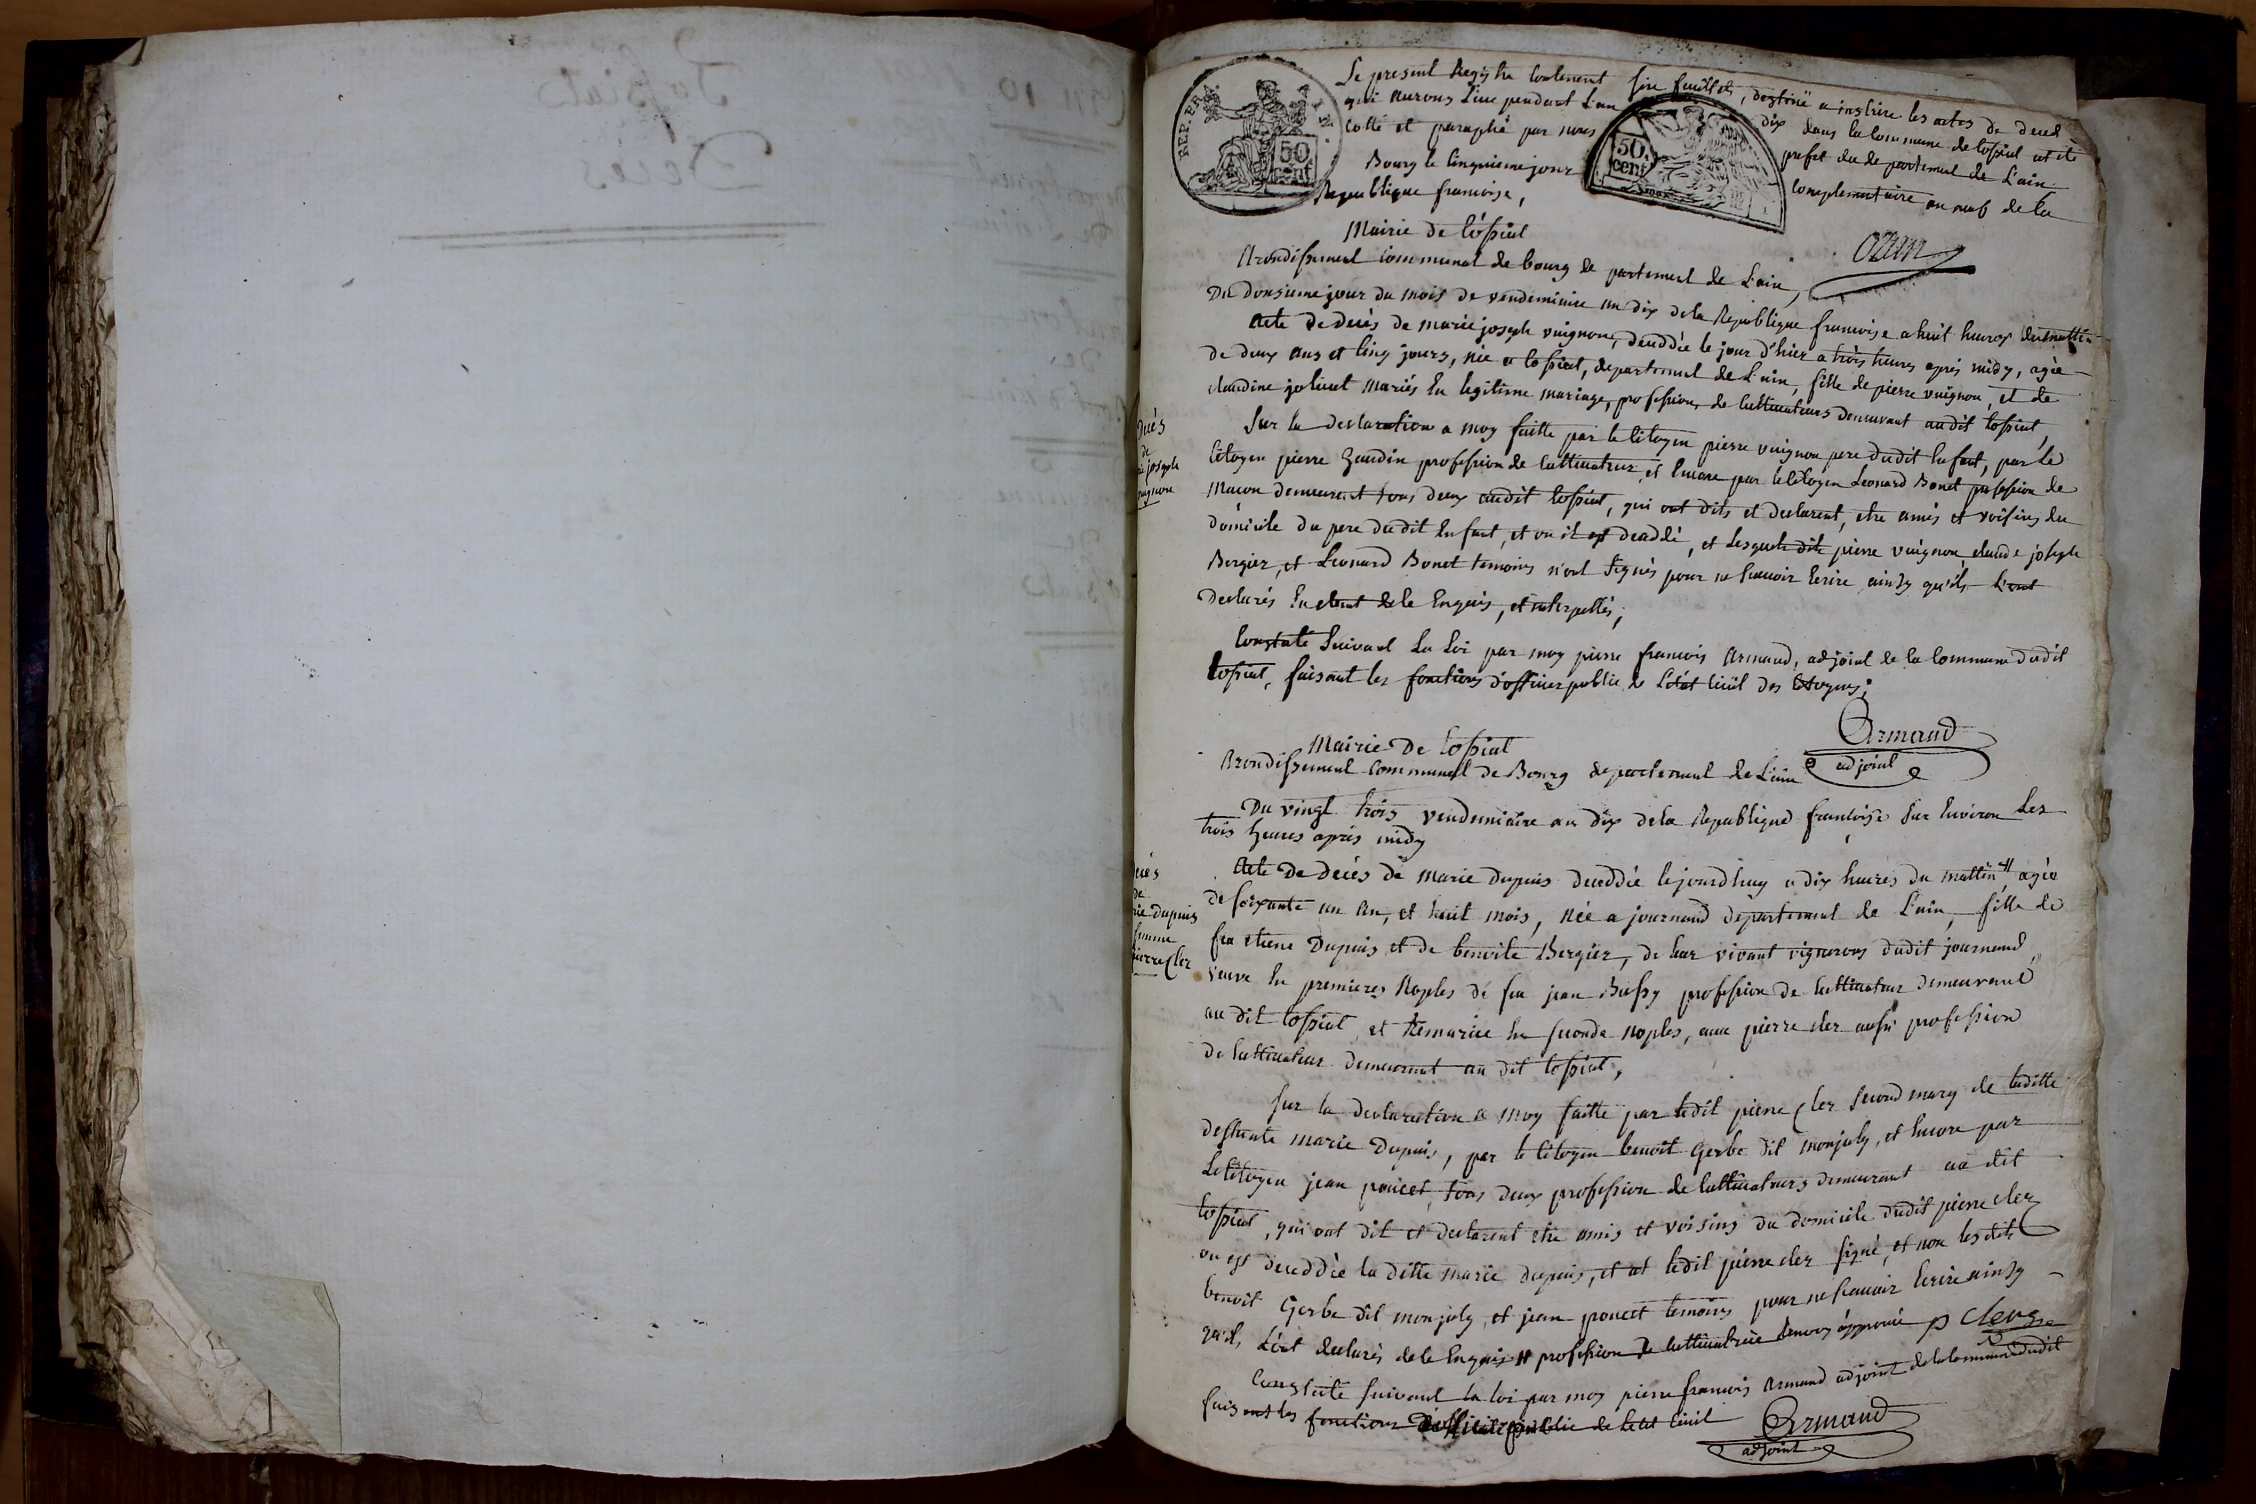 Le present Registre contenent six feuillets, destiné a inscrire les actes de deces
qui aurons lieu pendant l'an dix dans la commune de tossiat at été
cotté et paraphé par nous prefet du departement de L'ain
Bourg le cinquieme jour complementaire an neuf de la
Republique francoise,
REP. FRA.
50 cent
50. cent
ozun
Mairie de tossiat
Arondissement communal de bourg departement de L'ain,
Du donsieme jour du mois de vendemiaire an dix de la Republique francoise a huit heures du mattin
Acte de decès de marie joseph vuignon, deceddée le jour d'hier a trois heures après midy, agée
de deux ans et cinq jours, née a tossiat, departement de L'ain, fille de pierre vuignon, et de
claudine joliuet mariés en legitime mariage, profession de cultivateurs demeurant audit tossiat,
Sur la declaration a moy faitte par le citoyen pierre vuignon pere dudit enfant, par le
citoyen pierre gaudin profession de cultivateur, et encore par le citoyen Leonard Bonet profession de
Macon demeurant tous deux audit tossiat, qui ont dits et declarent, etre amis et voisins du
domicile du pere dudit enfant, et ou il est deceddé, et lesquels dits pierre vuignon, claude joseph
Bergier, et Leonard Bonet temoins n'ont signés pour ne scavoir ecrire ainsy qu'ils L'ont
declarés en etant de le enquis, et interpellés;
Constaté suivant la Loi par moy pierre francois Armand, adjoint de la commune dudit
tossiat, faisant les fonctions d'officier public de L'état civil des citoyens;
Armand
adjoint
Decès
de
marie joseph
vuignon
Mairie De tossiat
Arondissement communal de Bourg departement de L'ain
Du vingt trois vendemiaire an dix de la Republique francoise sur environ les
trois heures après midy
Acte De decès de marie dupuis deceddée le jourdhuy a dix heures du mattin # agée
de soixante un an, et huit mois, née a journand departement de L'ain, fille de
feu etiene Dupuis et de benoite Bergier, de leur vivant vignerons dudit journand,
veuve en premieres Noples de feu jean Bussy profession de cultivateur demeurant
au dit tossiat, et Remariée en seconde noples, avec pierre cler aussi profession
de cultivateur demeurant au dit tossiat,
Sur la declaration a moy faitte par ledit pierre Cler second mary de laditte
deffunte marie Dupuis, par le citoyen benoit Gerbe dit monjuly, et encore par
Le citoyen jean poncet, tous deux profession de cultivateurs demeurant au dit
tossiat, qui ont dit et declarent etre amis et voisins du domicile dudit pierre cler
ou est deceddée la ditte marie dupuis, et at ledit pierre cler signé, et non lesdits
benoit Gerbe dit monjuly, et jean poncet temoins pour ne scavoir ecrire ainsy
qu'ils L'ont declarés de le enquis # profession de cultivatrice renvoy approuvé P Clerc
Constaté suivant la loi par moy pierre francois Armand adjoint de la commune dudit
faisant les fonctions d'officier public de letat civil
Armand
adjoint
Decès
de
marie dupuis
femme
pierre Cler